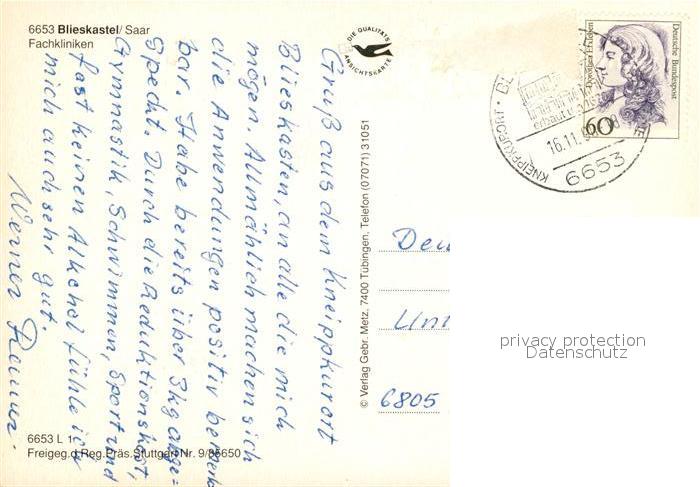 6653 Blieskastel/ Saar
Fachkliniken
DIE QUALITÄTS
ANSICHTSKARTE
Gruß aus dem Kneippkurort
Blieskasten, an alle die mich
mögen. Allmählich machen sich
die Anwendungen positiv bemerk
bar. Habe bereits über 3kg abge=
specht. Durch die Reduktionskost,
Gymnastik, Schwimmen, Sport und
fast keinen Alkohol fühle ich
mich auch sehr gut.
Werner
6653 L 1
Freigeg.d.Reg.Präs.Stuttgart Nr. 9/85650
© Verlag Gebr. Metz, 7400 Tübingen, Telefon (07071) 31051
Deutsche Bundespost
60
16.11.
KNEIPPKURORT
6653
6805
privacy protection
Datenschutz